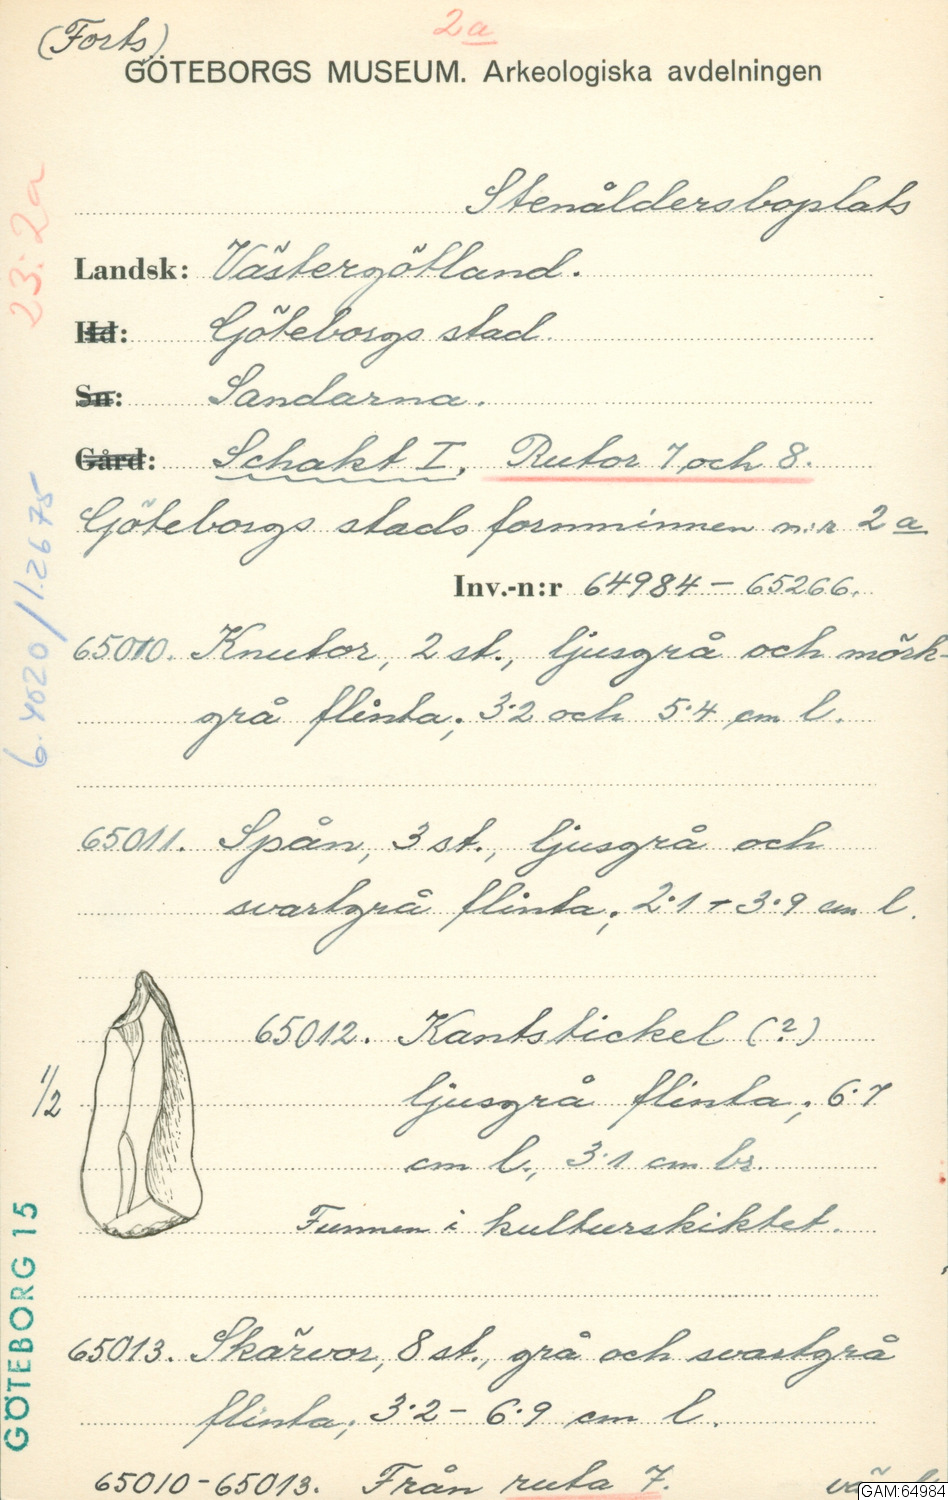 (Forts)
2a
GÖTEBORGS MUSEUM. Arkeologiska avdelningen
23:2a
Stenåldersboplats
Landsk: Västergötland.
Hd: Göteborgs stad.
Sn: Sandarna.
Gård: Schakt I. Rutor 7 och 8.
Göteborgs stads fornminnen n:r 2a
Inv.-n:r 64984 – 65266.
65010. Knutor, 2 st., ljusgrå och mörk-
grå flinta; 3·2 och 5·4 cm l.
65011. Spån, 3 st., ljusgrå och
svartgrå flinta; 2·1 – 3·9 cm l.
65012. Kantstickel (?)
ljusgrå flinta; 6·7
cm l., 3·1 cm br.
Funnen i kulturskiktet.
1/2
65013. Skärvor, 8 st., grå och svartgrå
flinta; 3·2 – 6·9 cm l.
65010 – 65013. Från ruta 7.
GÖTEBORG 15
GAM:64984